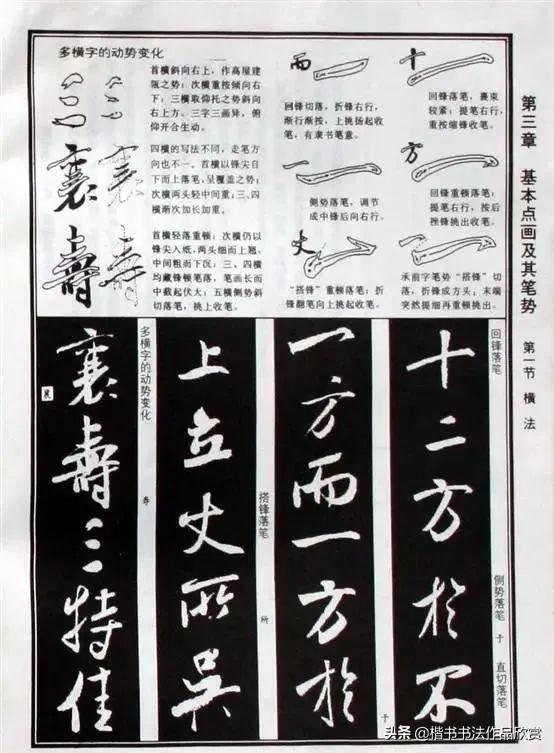 第三章 基本点画及其笔势 第一节 横法
多横字的动势变化
首横斜向右上，作高屋建
瓴之势；次横重按倾向右
下；三横取仰托之势斜向
右上方。三字三画异，俯
仰开合生动。
四横的写法不同，走笔方
向也不一。首横以锋尖自
下而上落笔，呈覆盖之势；
次横两头轻中间重；三、四
横渐次加长加重。
首横轻落重顿；次横仍以
锋尖入纸，两头细而上翘，
中间粗而下沉；三、四横
均藏锋顿笔落，笔画长而
中截起伏大；五横侧势斜
切落笔，挑上收笔。
襄
寿
而
回锋切落，折锋右行，
渐行渐按，上挑扬起收
笔，有隶书笔意。
一
侧势落笔，调节
成中锋后向右行。
丈
“搭锋”重顿落笔；折
锋翻笔向上挑起收笔。
十
回锋落笔，裹束
较紧；提笔右行，
重按缩锋收笔。
方
回锋重顿落笔；
提笔右行，按后
挫锋挑出收笔。
承前字笔势“搭锋”切
落，折锋成方头；末端
突然提细再重顿挑出。
回锋落笔
侧势落笔
于
直切落笔
十二方於不
一方而一方於
于
搭锋落笔
所
上立丈所吴
多横字的动势变化
寿
襄寿三特佳
襄
头条@楷书书法作品欣赏